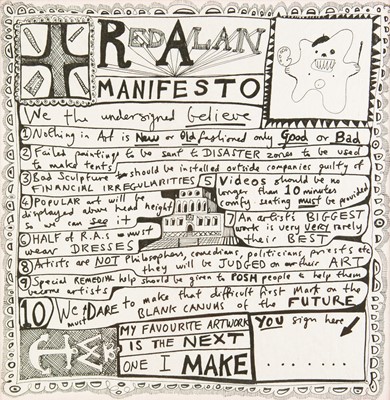 RED ALAN
MANIFESTO
We the undersigned believe
① Nothing in Art is New or Old fashioned only Good or Bad
② Failed paintings to be sent to DISASTER zones to be used
to make tents
③ Bad Sculpture should be installed outside companies guilty of
FINANCIAL IRREGULARITIES
④ Popular art will be
displayed above head height
so we can see it
⑤ Videos should be no
longer than 10 minutes
comfy seating must be provided
⑥ HALF of R.A.s must
wear DRESSES
⑦ An artists BIGGEST
work is very very rarely
their BEST
⑧ Artists are NOT Philosophers, comedians, politicians, priests etc
they will be JUDGED on their ART
⑨ Special REMEDIAL help should be given to POSH people to help them
become artists
10 We must DARE to make that difficult first mark on the
BLANK CANVAS of the FUTURE
MY FAVOURITE ARTWORK
IS THE NEXT
ONE I MAKE
YOU sign here